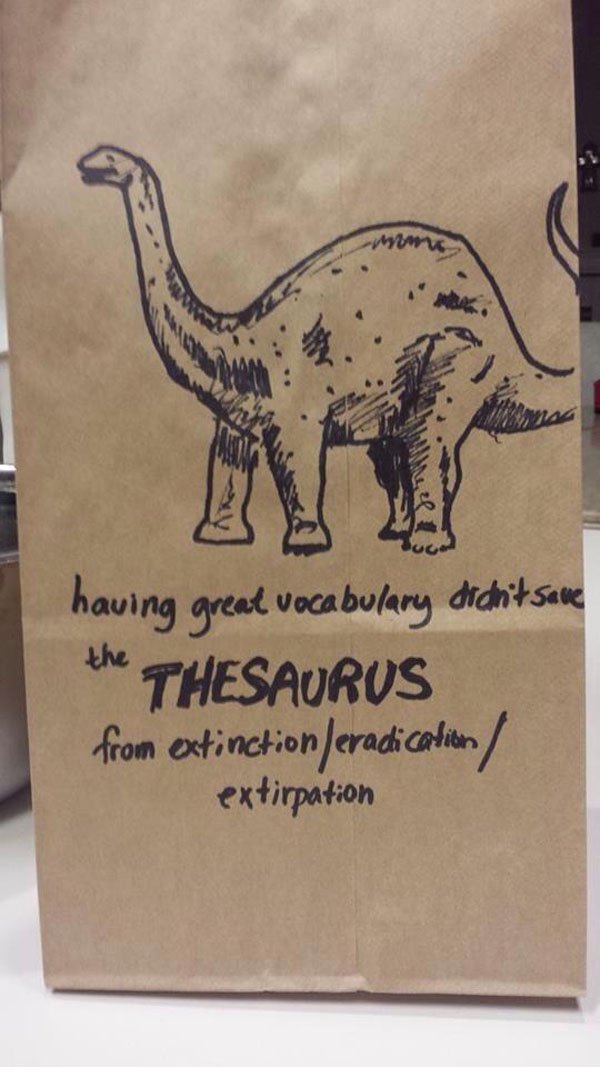 having great vocabulary didn't save
the THESAURUS
from extinction/eradication/
extirpation